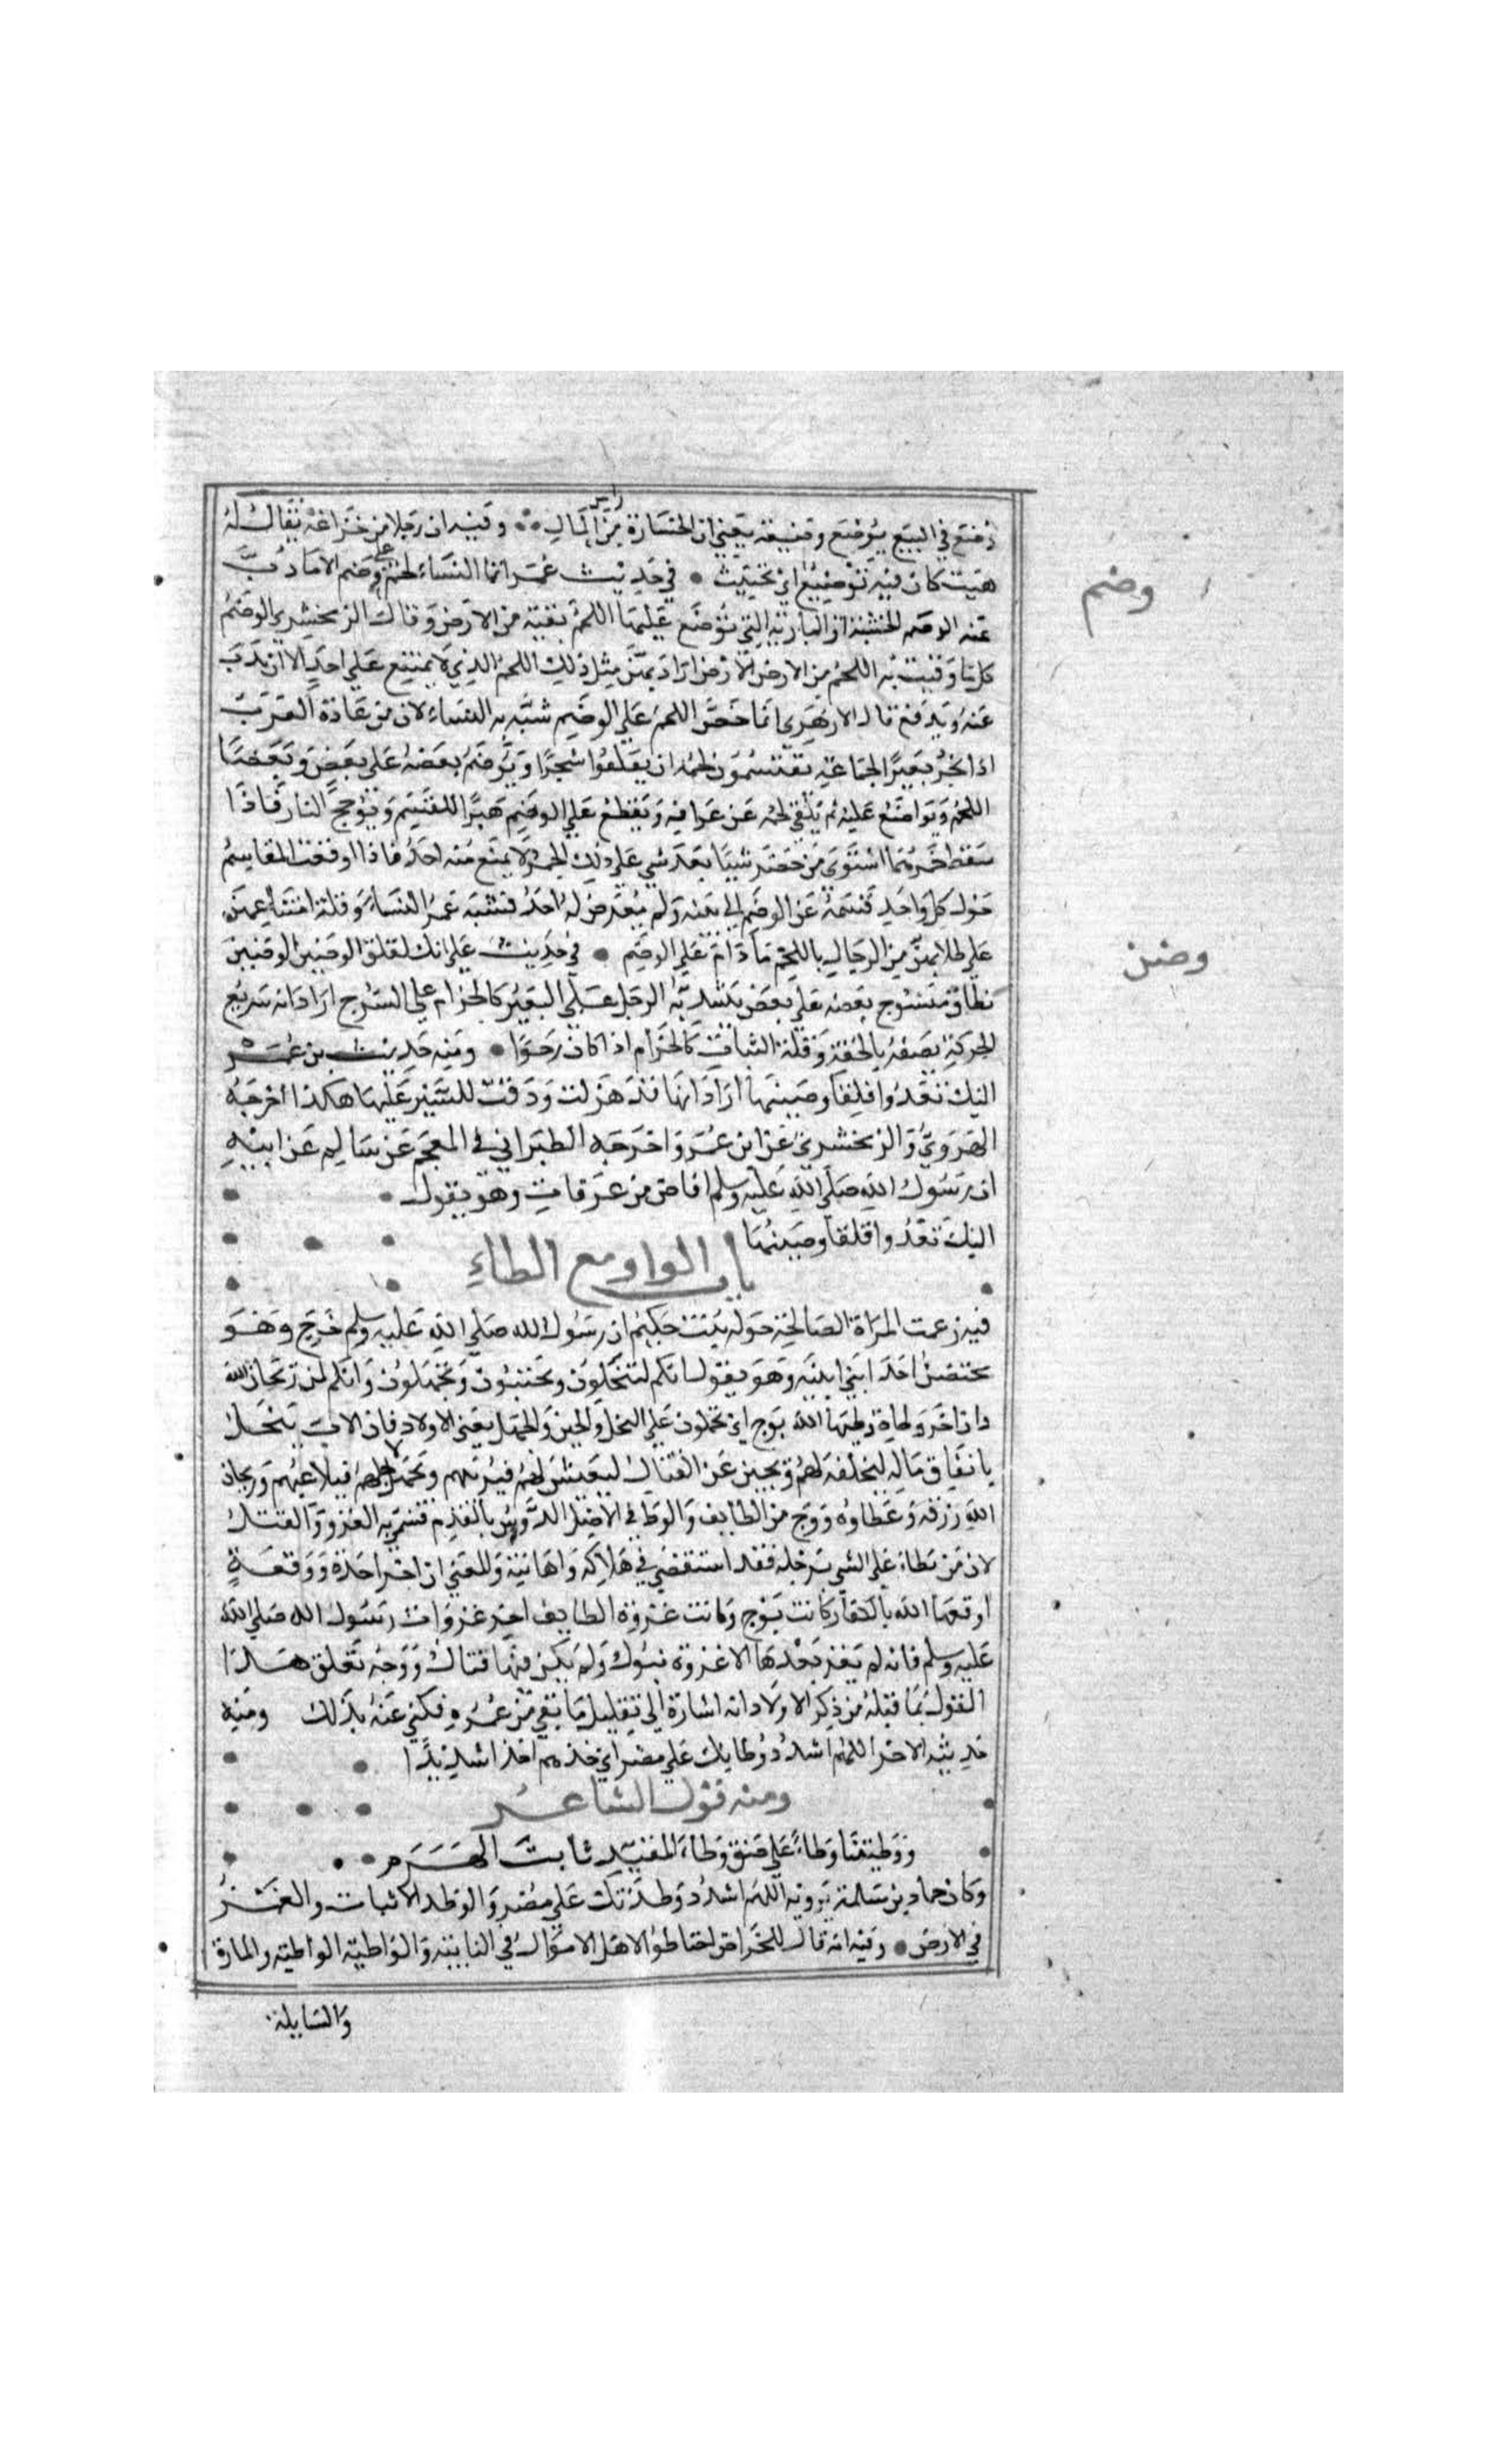 وُضِع في البيع يُوضَع وضيعة يعني ان الخسارة من راس المال وفيه ان رجلا من خزاعة يقال له
هيت كان فيه توضيع اي تخنيث في حديث عمر انما النساء لحم على وضم الا ما ذُبّ
وضم
عنه الوضم الخشبة او البارية التي يوضع عليها اللحم تقيه من الارض وقال الزمخشري الوضم
كل ما وقيت به اللحم من الارض اراد بهن مثل ذلك اللحم الذي لا يمتنع على احد الا ان يذب
عنه ويدفع قال الازهري انما خص اللحم على الوضم شبه به النساء لان من عادة العرب
اذا نحر بعيرا لجماعة يقتسمون لحمه ان يقلعوا شجرا ويوضم بعضه على بعض ويعضا
اللحم ويواضع عليه ثم يلقى لحمه عن عراقيه ويقطع على الوضم هبرا للقسم ويوجج النار فاذا
سقط جمرها اشتوى من حضر شيا بعد شي على ذلك الجمر لا يمنع منه احد فاذا وقعت المقاسم
حول كل واحد قسمه عن الوضم الى بيته ولم يعرض له احد فشبه عمر النساء وقلة امتناعهن
على طلابهن من الرجال باللحم ما دام على الوضم في حديث على انك لقلق الوضين الوضين
وضن
نطاق منسوج بعضه على بعض يشد به الرحل على البعير كالحزام على السرج اراد انه سريع
الحركة يصفه بالخفة وقلة الثبات كالحزام اذا كان رخوا ومنه حديث بن عمر
اليك تعدوا قلقا وضينها اراد انها قد هزلت ودقت للسير عليها هكذا اخرجه
الهروي والزمخشري عن ابن عمر واخرجه الطبراني في المعجم عن سالم عن ابيه
ان رسول الله صلى الله عليه وسلم افاض من عرفات وهو يقول
اليك تعدوا قلقا وضينها
باب الواو مع الطاء
فيه زعمت المراة الصالحة خولة بنت حكيم ان رسول الله صلى الله عليه وسلم خرج وهو
محتضن احد ابني ابنته وهو يقول انكم لتبخلون وتجبنون وتجهلون وانكم لمن ريحان الله
وان اخر وطاة وطيها الله بوج اي تحملون على البخل والجبن والجهل يعني الاولاد فان الاب يبخل
بانفاق ماله ليخلفه لهم ويجبن عن القتال ليعيش لهم فيربيهم ويجهل لاجلهم فيلاعبهم وريحان
الله رزقه وعطاوه ووج من الطايف والوطا في الاصل الدوس بالقدم فسمي به الغزو والقتل
لان من يطاء على الشي برجله فقد استقصى في هلاكه واهانته والمعنى ان اخر اخذة ووقعة
اوقعها الله بالكفار كانت بوج وكانت غزوة الطايف اخر غزوات رسول الله صلى الله
عليه وسلم فانه لم يغز بعدها الا غزوة تبوك ولم يكن فيها قتال ووجه تعلق هذا
القول بما قبله من ذكر الاولاد انه اشارة الى تقليل ما بقي من عمره فكنى عنه بذلك ومنه
حديثه الاخر اللهم اشدد وطاتك على مضر اي خذهم اخذا شديدا
ومنه قول الشاعر
ووطيتنا وطاءً على حنق وطاء المقيد ثابت الهرم
وكان حماد بن سلمة يرويه اللهم اشدد وطدتك على مضر والوطد الاثبات والغمز
في الارض وفيه انه قال للخراص احتاطوا لاهل الاموال في النايبة والواطية الواطية والمارة
والسابلة